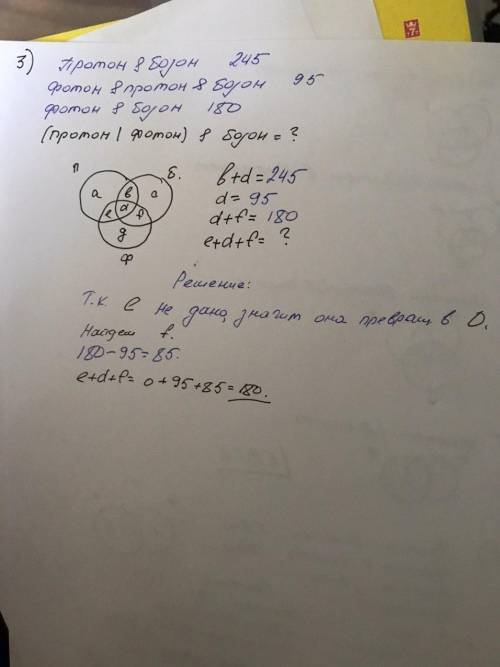 3) Протон & бозон 245
фотон & протон & бозон 95
фотон & бозон 180
(протон | фотон) & бозон = ?
п
Б.
a
в
c
e
d
f
g
ф
в+d=245
d=95
d+f=180
e+d+f= ?
Решение:
Т.к. е не дана, значит она превращ в 0.
Найдем f.
180-95=85.
e+d+f= 0+95+85=180.